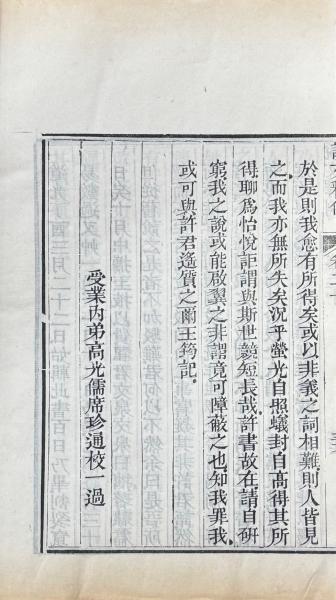 於是則我愈有所得矣或以非義之詞相難則人皆見
之而我亦無所失矣況乎螢光自照蟻封自高得其所
得聊為怡悅詎謂與斯世競短長哉許書故在請自研
窮我之說或能啟翼之非謂竟可障蔽之也知我罪我
或可與許君遙質之爾王筠記
受業內弟高光儒席珍通校一過